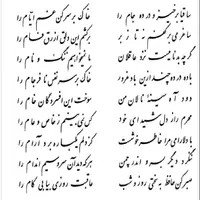 ساقیا برخیز و درده جام را خاک بر سر کن غم ایام را
ساغر می بر کفم نه تا ز بر برکشم این دلق ازرق فام را
گرچه بدنامیست نزد عاقلان ما نمیخواهیم ننگ و نام را
باده در ده چند ازین باد غرور خاک بر سر نفس نافرجام را
دود آه سینه نالان من سوخت این افسردگان خام را
محرم راز دل شیدای خود کس نمی بینم ز خاص و عام را
با دلارامی مرا خاطر خوشست کز دلم یکباره برد آرام را
ننگرد دیگر بسرو اندر چمن هر که دید آن سرو سیم اندام را
صبر کن حافظ به سختی روز و شب عاقبت روزی بیابی کام را